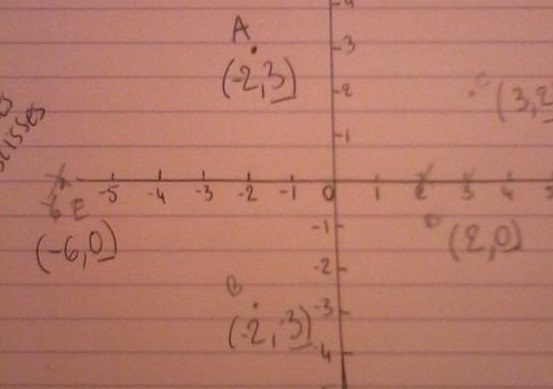 A
3
(-2,3)
2
(3,2
1
-5 -4 -3 -2 -1 0 1 2 3 4
E
(-6,0)
-1
D
(2,0)
-2
B
-3
(-2,-3)
-4